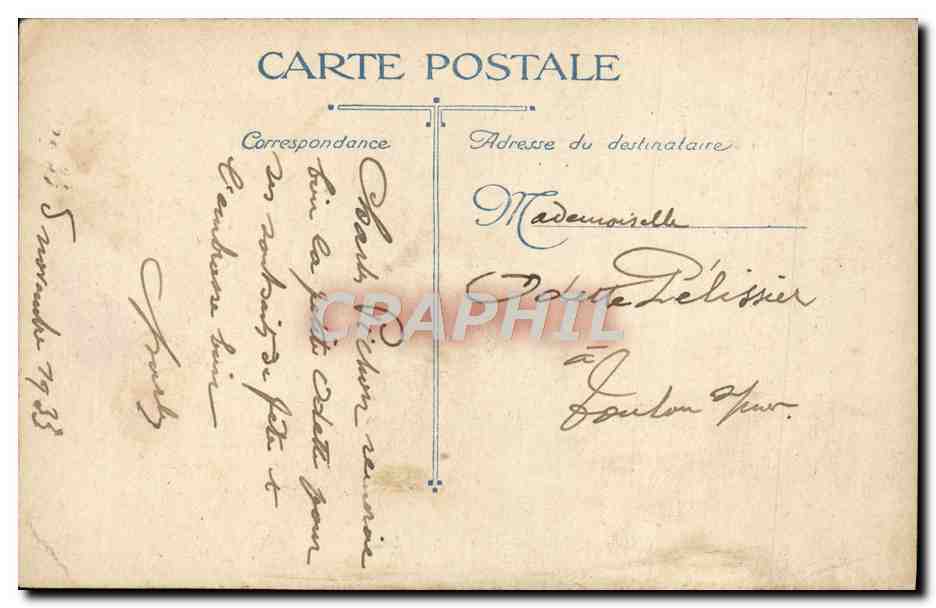 CARTE POSTALE
Correspondance
Charles Pichon remercie
bien la petite Odette pour
ses souhaits de fête &
l'embrasse bien
Charles
5 novembre 1933
Adresse du destinataire
Mademoiselle
Odette Pélissier
à
Toulon
CPARAMA
CPAPHIL